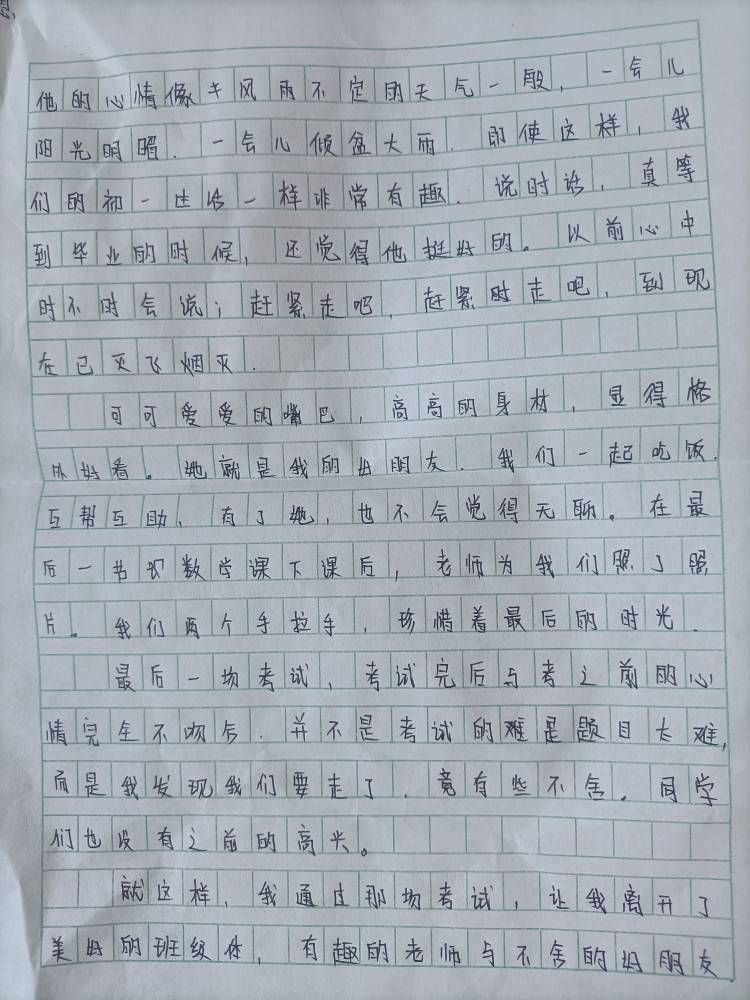 他的心情像半风雨不定的天气一般，一会儿
阳光明媚．一会儿倾盆大雨．即使这样，我
们的初一生活一样非常有趣．说时话，真等
到毕业的时候，还觉得他挺好的。以前心中
时不时会说；赶紧走吧，赶紧时走吧，到现
在已灭飞烟灭．
可可爱爱的嘴巴，高高的身材，显得格
外好看。她就是我的好朋友．我们一起吃饭．
互帮互助、有了她，也不会觉得无聊。在最
后一节的数学课下课后，老师为我们照了照
片。我们两个手拉手，珍惜着最后的时光．
最后一场考试，考试完后与考之前的心
情完全不吻合．并不是考试的难是题目太难，
而是我发现我们要走了．竟有些不舍．同学
们也没有之前的高兴。
就这样，我通过那场考试，让我离开了
美好的班级体，有趣的老师与不舍的好朋友